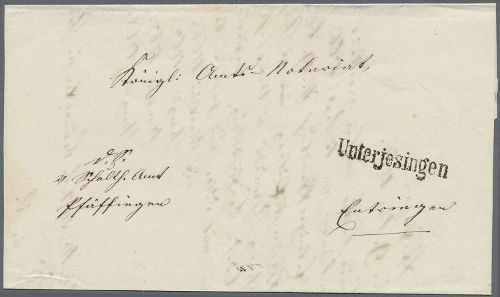 Königl: Amts-Notariat,
Unterjesingen
d. S.
v. Schulth. Amt
Pfäffingen
Entringen